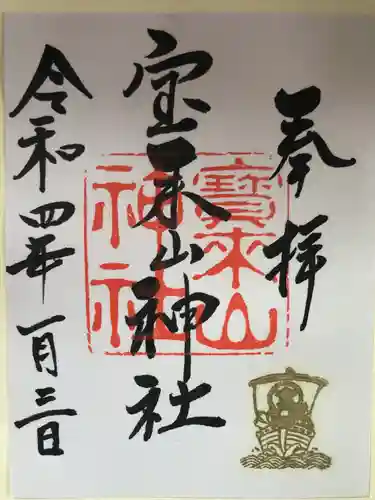 奉拝
宝来山神社
寳來山
神社
令和四年一月三日